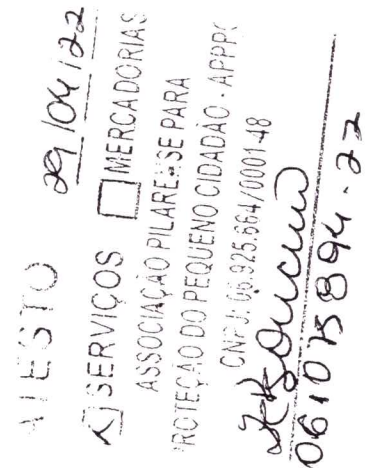 ATESTO 29/04/22
SERVIÇOS MERCADORIAS
ASSOCIAÇÃO PILARENSE PARA
PROTEÇÃO DO PEQUENO CIDADÃO - APPPC
CNPJ: 06.925.664/0001-48